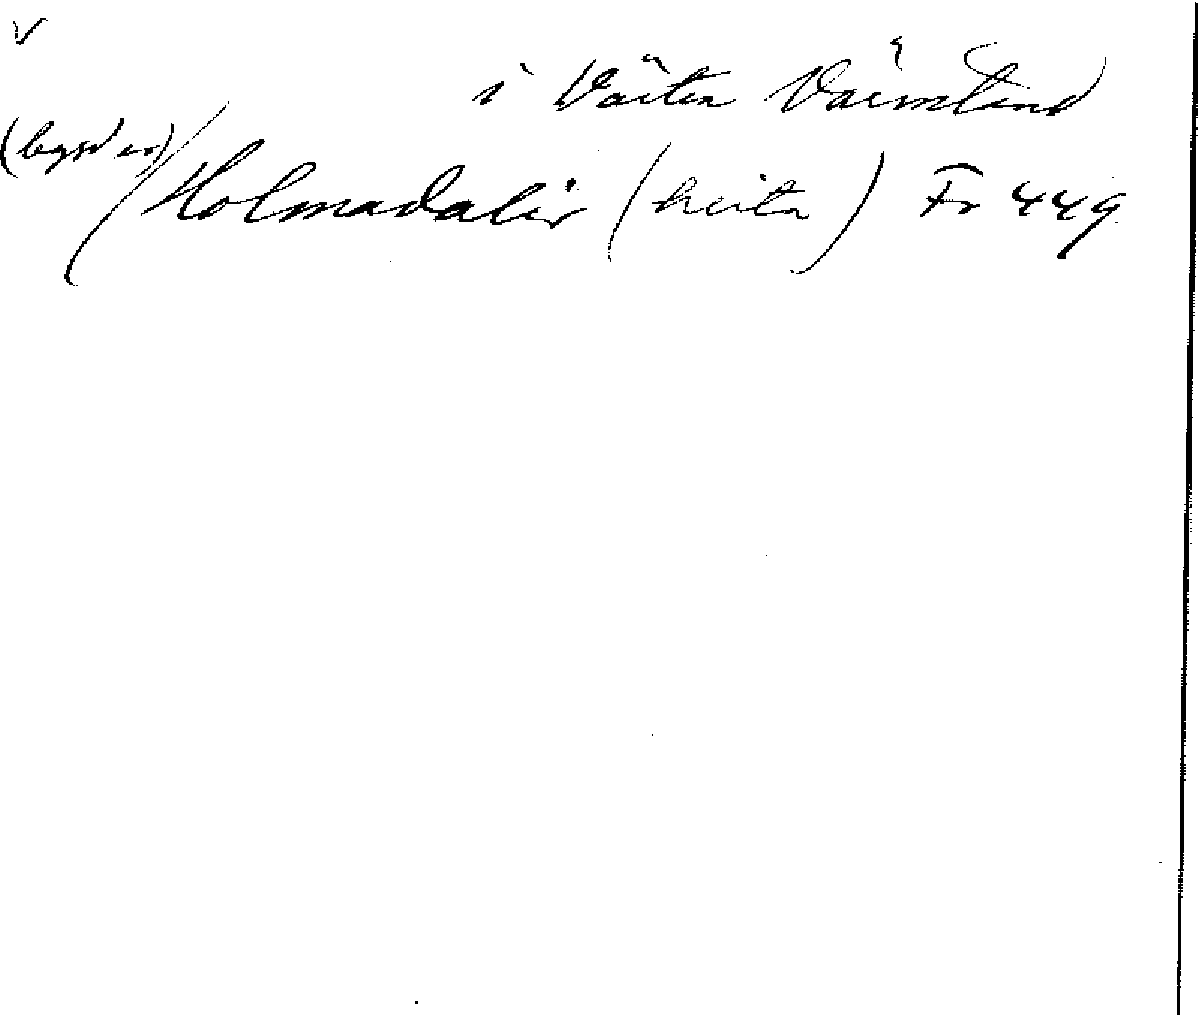 v
i Väster Värmland
(bygd er)
Holmadalir (heita) Fr 449